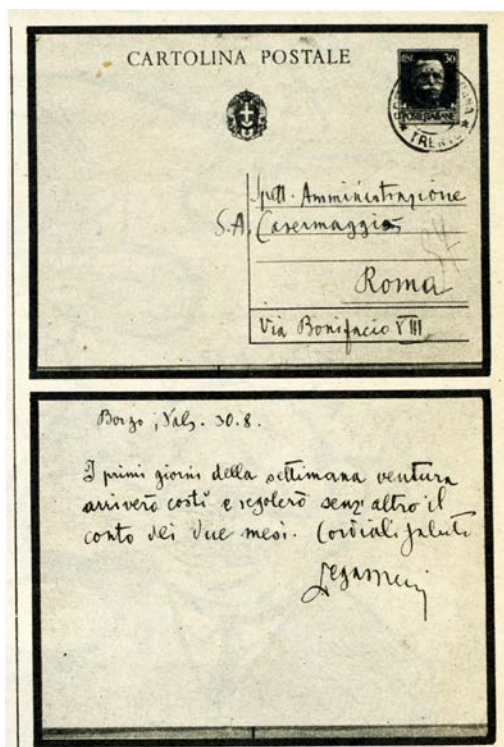 CARTOLINA POSTALE
30
POSTE ITALIANE
TRENTO
Spett. Amministrazione
S.A. Casermaggio
Roma
Via Bonifacio VIII
Borgo, Vals. 30.8.
I primi giorni della settimana ventura
arriverò costì e regolerò senz'altro il
conto dei due mesi. Cordiali saluti